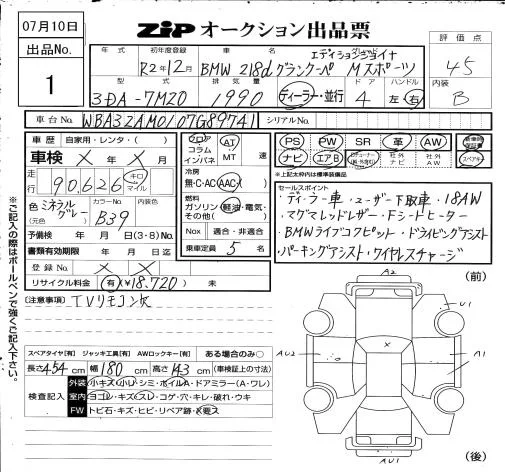 07月10日
ZIP オークション出品票
出品No.
1
年式 初年度登録 車名 グレード 評価点
R2年12月 BMW 218d グランクーペ エディションジョイナ Mスポーツ
45
型式 排気量 ドア ハンドル 内装
3DA-7M20 1990 ディーラー・並行 4 左右 B
車台No. WBA32AM0/07G89741 シリアルNo.
車歴 自家用・レンタ・( )
車検 × 年 × 月
走行 90,626 キロ マイル
色 ミネラルグレー カラーNo. B39 内装色
予備検 年 月 日(3・8)No.
書類有効期限 年 月 日
登録No. × ×
リサイクル料金 有(¥18,720) 未
フロア コラム インパネ AT MT 速
冷房 無・C・AC AAC
燃料 ガソリン・軽油・電気・その他( )
Nox 適合・非適合
乗車定員 5 名
PS PW SR 革 AW
ナビ エアB 社外ナビ 社外AW スペアキー
※上記太枠内は標準装備品
セールスポイント
・ディーラー車・ユーザー下取車・18AW
・マグマレッドレザー・Fシートヒーター
・BMWライブコクピット・ドライビングアシスト
・パーキングアシスト・ワイヤレスチャージ
※ご記入の際はボールペンで強くご記入下さい。
(注意事項) TVリモコン欠
スペアタイヤ[有] ジャッキ工具[有] AWロックキー[有] ある場合のみ○
長さ 454 cm 幅 180 cm 高さ 143 cm (車検証上の寸法)
検査記入
外装 小キズ・小U・シミ・ホイルA・ドアミラー(A・ワレ)
室内 ヨゴレ・キズ・スレ・コゲ・穴・キレ・破れ・ウキ
FW トビ石・キズ・ヒビ・リペア跡・X要ス
(前)
A2
U1
AU2
×
A1
AU1
(後)